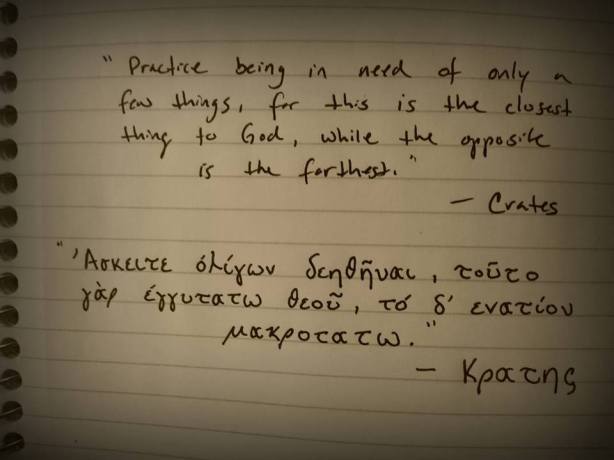 " Practice being in need of only a
few things, for this is the closest
thing to God, while the opposite
is the farthest."
— Crates
"Ἀσκειτε ὀλίγων δεηθῆναι, τοῦτο
γὰρ ἐγγυτατω θεοῦ, τό δ' ενατίον
μακροτατω."
— Κρατης